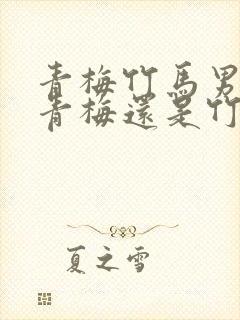 青梅竹馬男
青梅還是竹
夏之雪